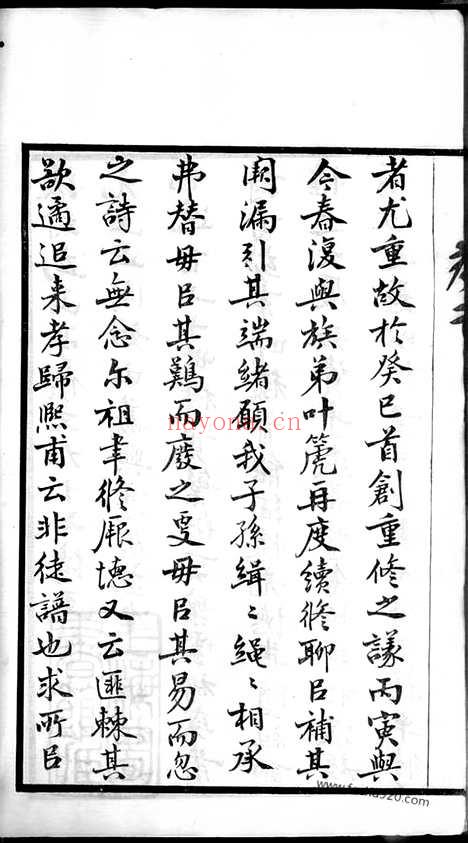 者尤重故於癸巳首創重修之議丙寅與
今春復與族弟叶篪再度續修聊㠯補其
闕漏引其端緒願我子孫緝〻繩〻相承
弗替毋㠯其難而廢之更毋㠯其易而忽
之詩云無念尔祖聿修厥德又云匪棘其
欲遹追来孝歸熙甫云非徒譜也求所㠯
nayona.cn
www.foshan520.com